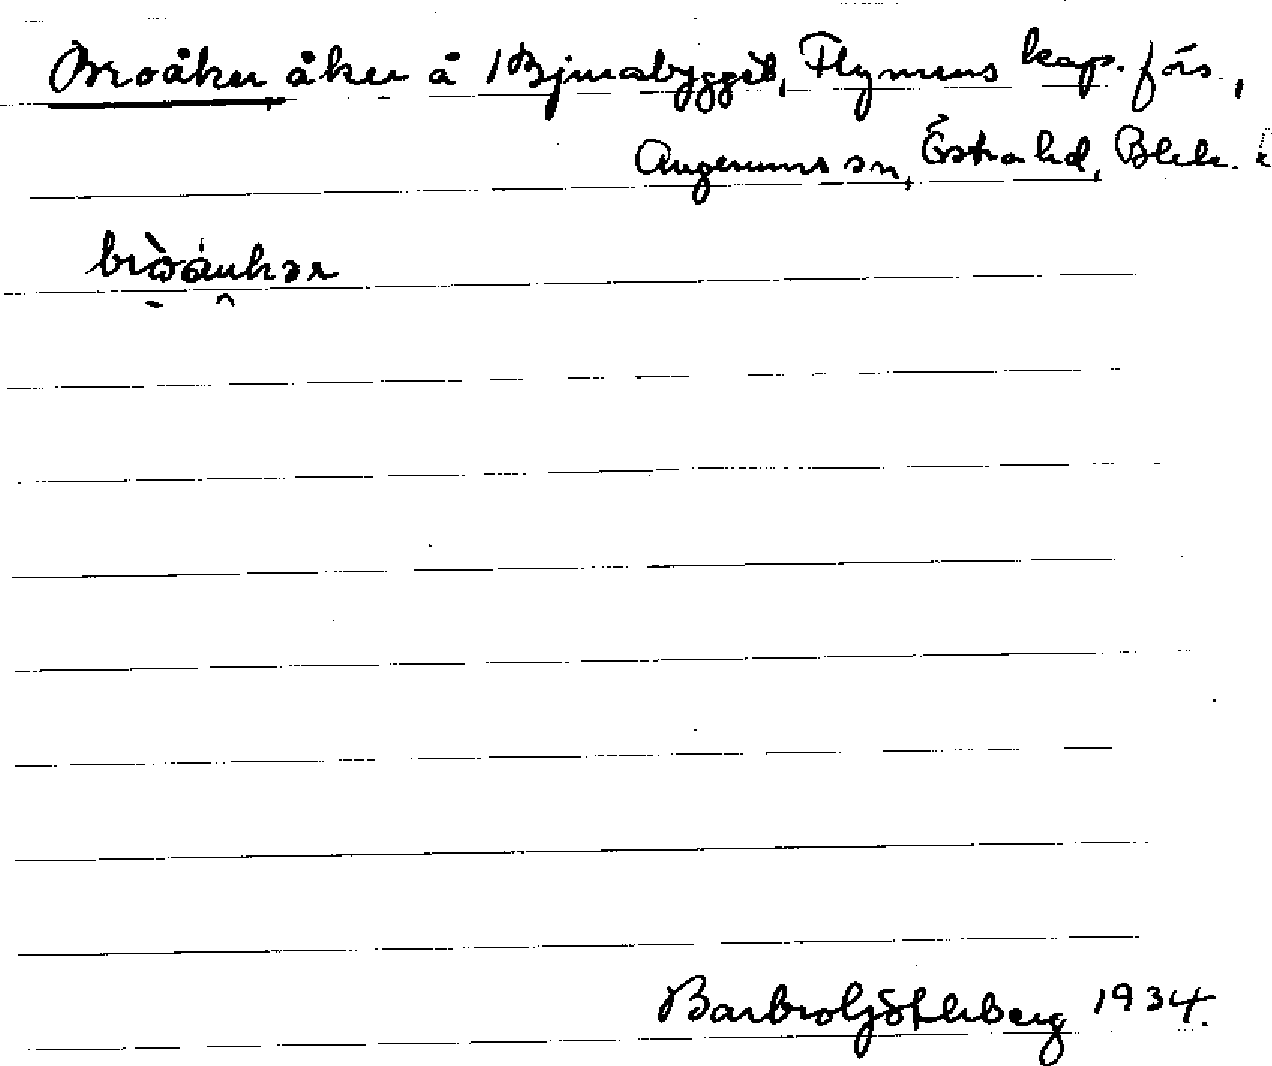 Broåker åker å 1 Bjurabygget, Flymens kap. förs.,
Augerums sn, Östra hd, Blek. l
Barbro Götlberg 1934.